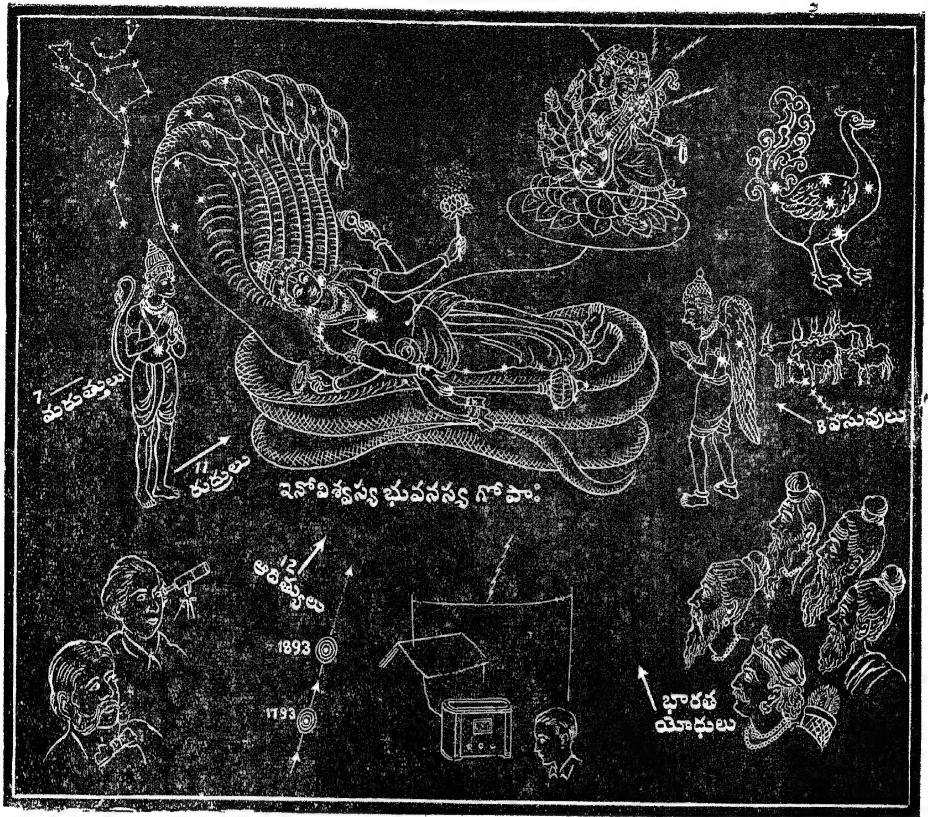 7
మరుత్తులు
11
రుద్రులు
8 వసువులు
ఇనోవిశ్వస్య భువనస్య గోపాః
12
ఆదిత్యులు
1893
1793
భారత
యోధులు